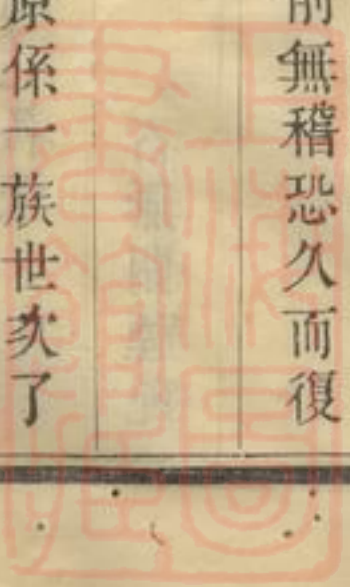 前無稽恐久而復
原係一族世次了